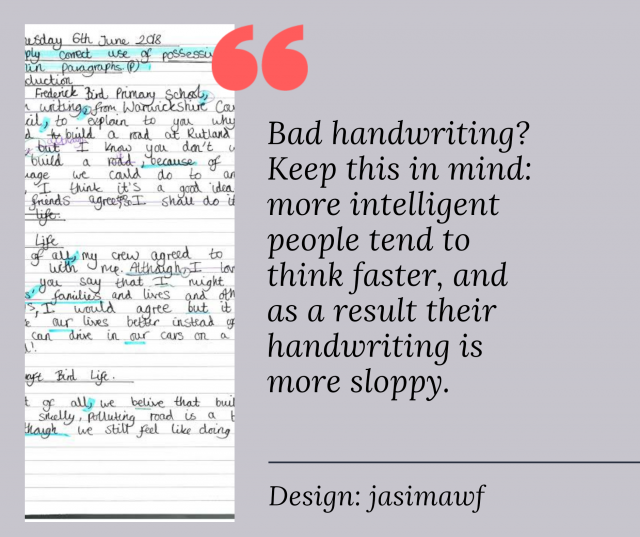 uesday 6th June 2018
ply correct use of possessi
in paragraphs (P)
duction
Frederick Bird Primary School,
writing, from Warwickshire Cou
cil, to explain to you why
d to build a road at Rutland
but I know you don't w
build a road, because of
age we could do to an
, I think it's a good idea
friends agree I shall do it
life.
Life
of all, my crew agreed to
with me. Although, I lov
you say that I might
s' families and lives and oth
s, I would agree but it
our lives better instead of
can drive in our cars on a
d!
Bird Life.
t of all, we belive that buil
smelly, polluting road is a b
though we still feel like doing
Bad handwriting?
Keep this in mind:
more intelligent
people tend to
think faster, and
as a result their
handwriting is
more sloppy.
Design: jasimawf